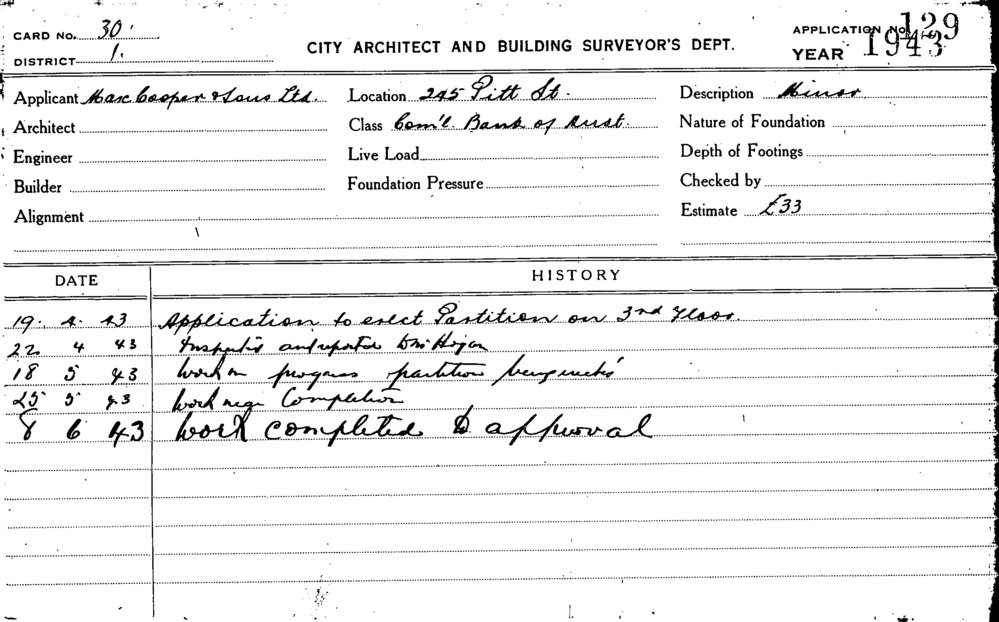 CARD NO. 30.
DISTRICT 1.
CITY ARCHITECT AND BUILDING SURVEYOR'S DEPT.
APPLICATION No. 129
YEAR 1943
Applicant Max Cooper & Sons Ltd. Location 245 Pitt St. Description Minor
Architect Class Com'l. Bank of Aust. Nature of Foundation
Engineer Live Load Depth of Footings
Builder Foundation Pressure Checked by
Alignment Estimate £33
DATE HISTORY
19. 4. 43 Application to erect Partition on 3rd Floor
22 4 43 and reported Hogan
18 5 43 Work in progress partition being
25 5 43 Work near Completion
8 6 43 Work completed to approval